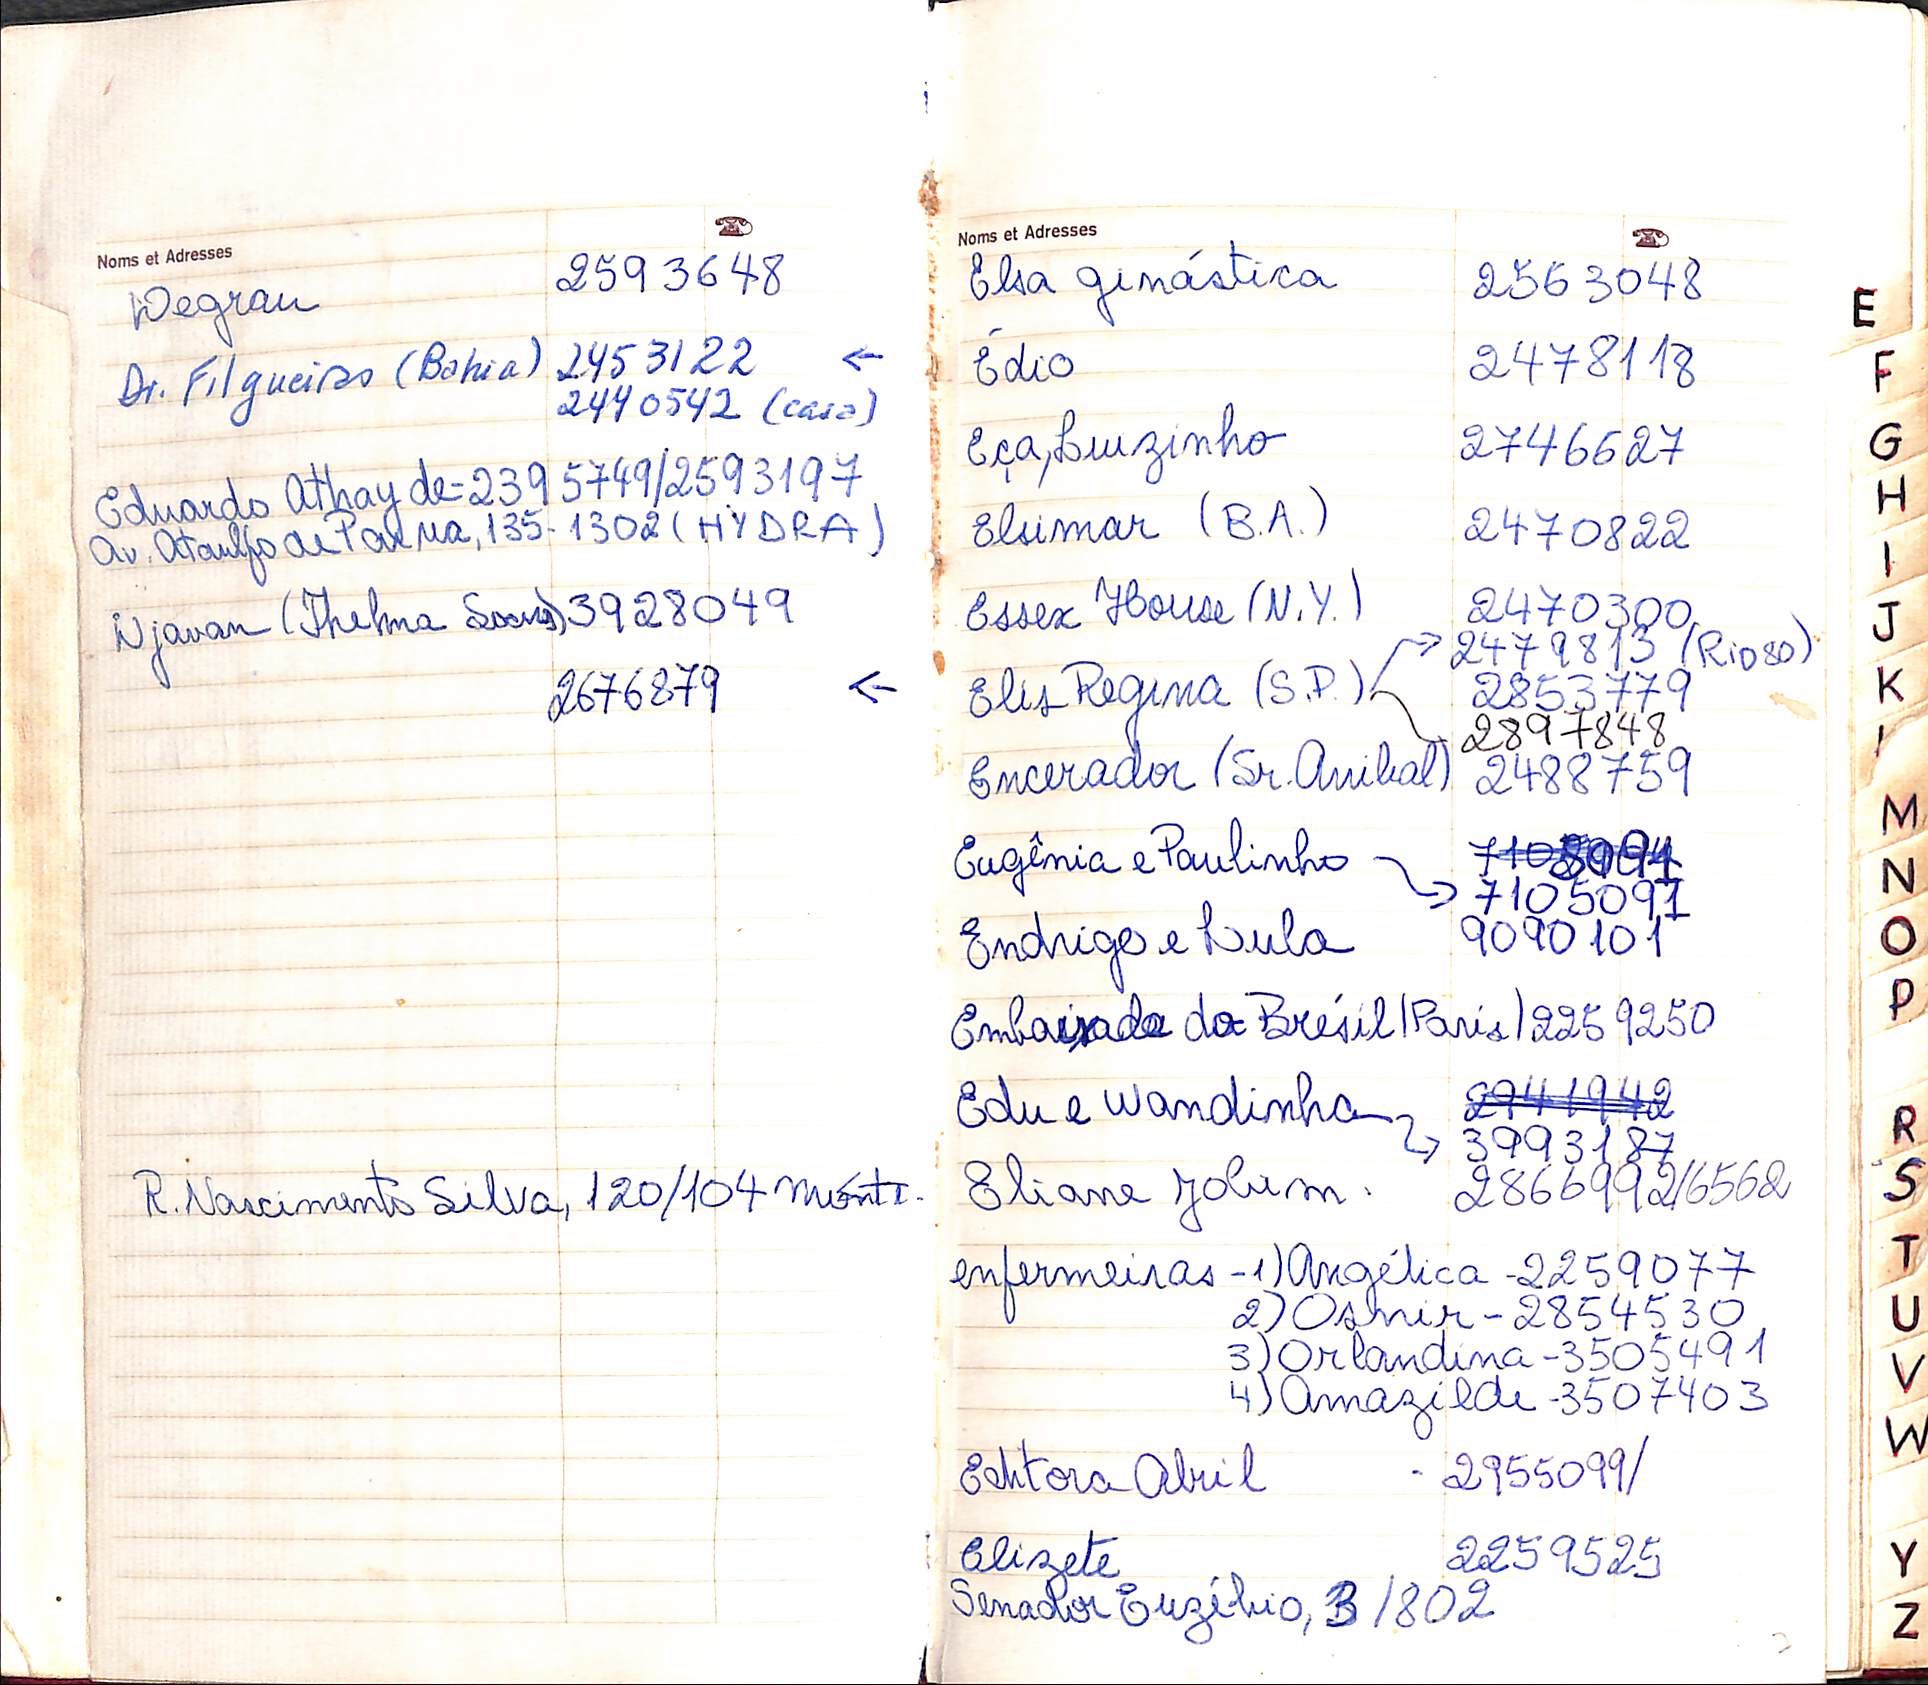 Noms et Adresses
Degrau 2593648
Dr. Filgueiras (Bahia) 2453122 ←
2440542 (casa)
Eduardo Athayde = 2395749/2593197
Av. Ataulfo de Paiva, 135 - 1302 (HYDRA)
Djavan (Thelma Soares) 3928049
2676879 ←
R. Nascimento Silva, 120/104
Noms et Adresses
Elsa ginástica 2563048
Édio 2478118
Eça, Luizinho 2746627
Elsimar (B.A.) 2470822
Essex House (N.Y.) 2470300
2479813 (Rio 80)
Elis Regina (S.P.) 2853779
2897848
Encerador (Sr. Anibal) 2488759
Eugênia e Paulinho
7105091
Endrigo e Lula 9090101
Embaixada do Brésil (Paris) 2259250
Edu e Wandinha 2941942
3993187
Eliane Jobim. 2866992/6562
enfermeiras - 1) Angélica - 2259077
2) Osmir - 2854530
3) Orlandina - 3505491
4) Amazilde - 3507403
Editora Abril - 2955099/
Elizete 2259525
Senador Euzébio, 3/802
E
F
G
H
I
J
K
M
N
O
P
R
S
T
U
V
W
Y
Z